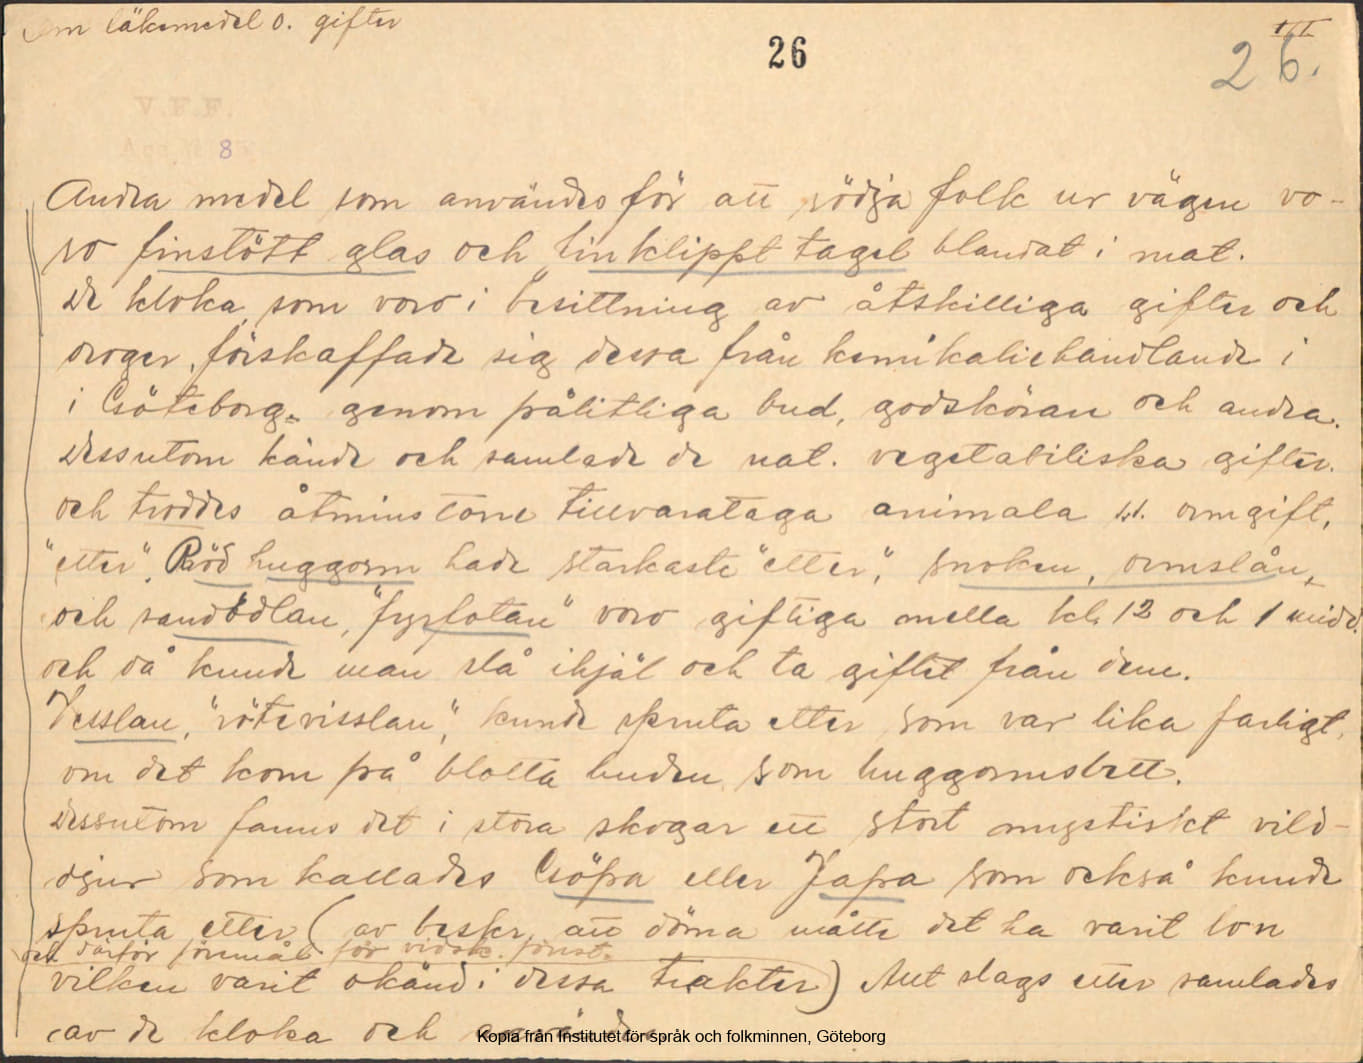 Om läkemedel o. gifter
III
26
26.
V.F.F.
8
Andra medel som användes för att rödja folk ur vägen vo-
ro finstött glas och finklippt tagel blandat i mat.
De kloka, som voro i besittning av åtskilliga gifter och
droger, förskaffade sig dessa från kemikaliehandlande i
i Göteborg genom pålitliga bud, godsköran och andra.
Dessutom kände och samlade de nat. vegetabiliska gifter.
och troddes åtminstone tillvarataga animala s.s. ormgift,
"etter". Röd huggorm hade starkaste "etter", snoken, ormslån,
och sandödlan, "fyrfotan" voro giftiga mella kl. 12 och 1 midd.
och då kunde man slå ihjäl och ta giftet från dem.
Vesslan, "rötevisslan", kunde spruta etter som var lika farligt,
om det kom på blotta huden, som huggormsbett.
Dessutom fanns det i stora skogar ett stort mystiskt vild-
djur som kallades Göpa eller Japa som också kunde
spruta etter (av beskr. att döma måtte det ha varit lon
och därför föremål för vidsk. först.
vilken varit okänd i dessa trakter) Allt slags etter samlades
av de kloka och
Kopia från Institutet för språk och folkminnen, Göteborg